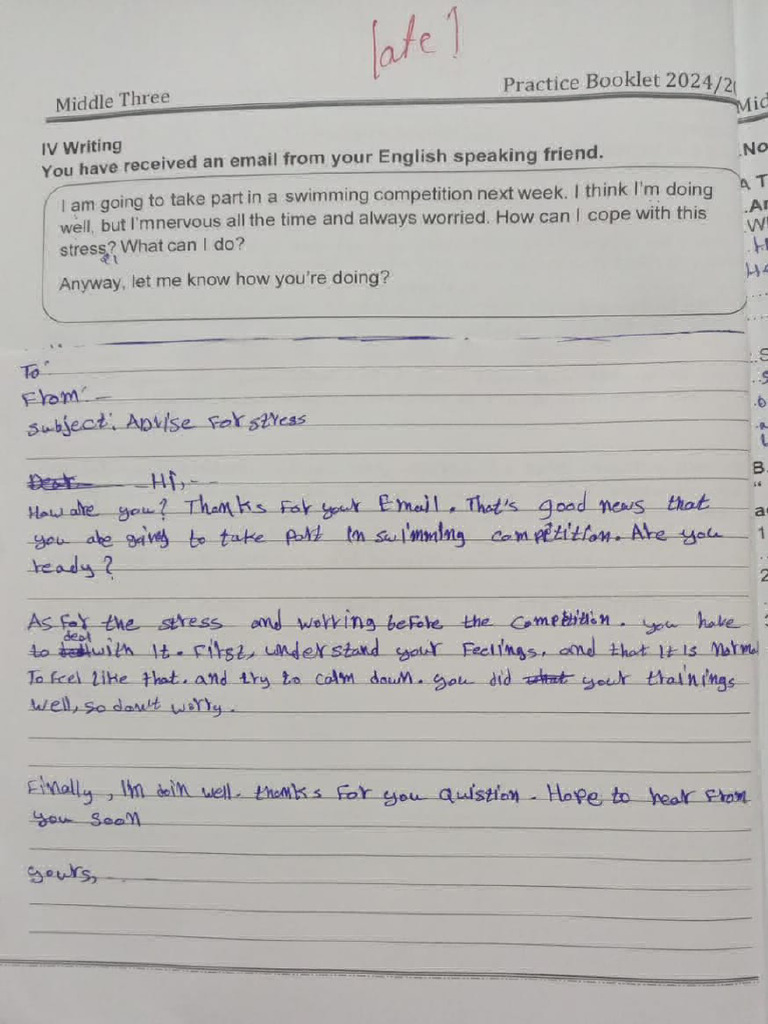 late !
Middle Three
Practice Booklet 2024/2
IV Writing
You have received an email from your English speaking friend.
I am going to take part in a swimming competition next week. I think I'm doing
well, but I'mnervous all the time and always worried. How can I cope with this
stress? What can I do?
Anyway, let me know how you're doing?
To:
From:
Subject: Advise For stress
Hi,
How are you? Thanks For your Email. That's good news that
you are going to take part in swimming compětition. Are you
ready?
As For the stress and worring before the Competition. you have
to deal with it. First, understand your Feelings. and that it is Normal
To Feel like that. and try to calm down. you did your trainings
well, so don't worry.
Finally, I'm doin well. thanks For you Quistion. Hope to hear From
you soon
yours,